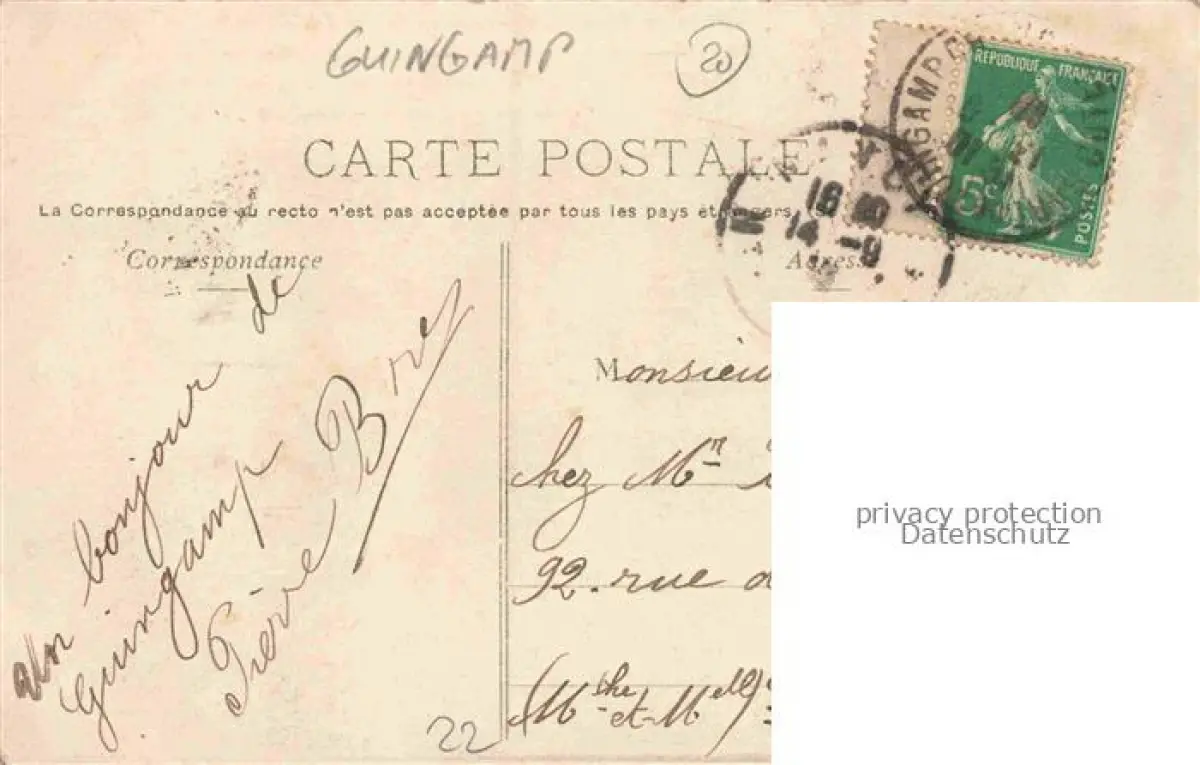 GUINGAMP
20
CARTE POSTALE
La Correspondance au recto n'est pas acceptée par tous les pays étrangers
Correspondance
Adresse
RÉPUBLIQUE FRANÇAISE
5c
POSTES
GUINGAMP
16
14 -9
un bonjour de
Guingamp
Pierre
Monsieu
chez Mn
92. rue d
(Mche et Mell)
22
privacy protection
Datenschutz